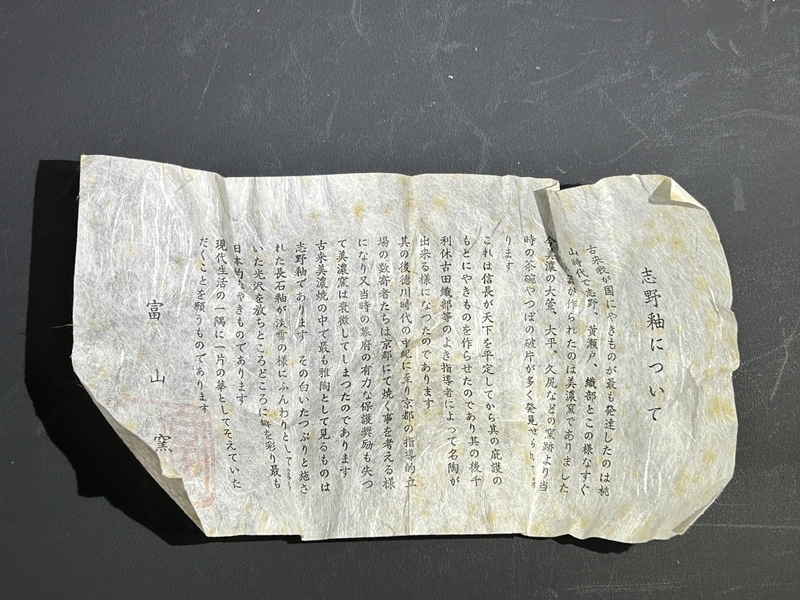 志野釉について
古来我が国にやきものが最も発達したのは桃
山時代で志野、黄瀬戸、織部とこの様なすぐ
が作られたのは美濃窯でありました
今美濃の大萱、大平、久尻などの窯跡より当
時の茶碗やつぼの破片が多く発見せら
ります
これは信長が天下を平定してから其の庇護の
もとにやきものを作らせたのであり其の後千
利休古田織部等のよき指導者によって名陶が
出来る様になつたのであります
其の後徳川時代の中紀に至り京都の指導的立
場の数寄者たちは京都にて焼く事を考える様
になり又当時の幕府の有力な保護奨励も失つ
て美濃窯は衰微してしまつたのであります
古来美濃焼の中で最も雅陶として見るものは
志野釉であります その白いたつぷりと施さ
れた長石釉が淡雪の様にふんわりとして
いた光沢を放ちところどころに緋を彩り最も
日本的なやきものであります
現代生活の一隅に一片の華としてそえていた
だくことを願うものであります
富山窯